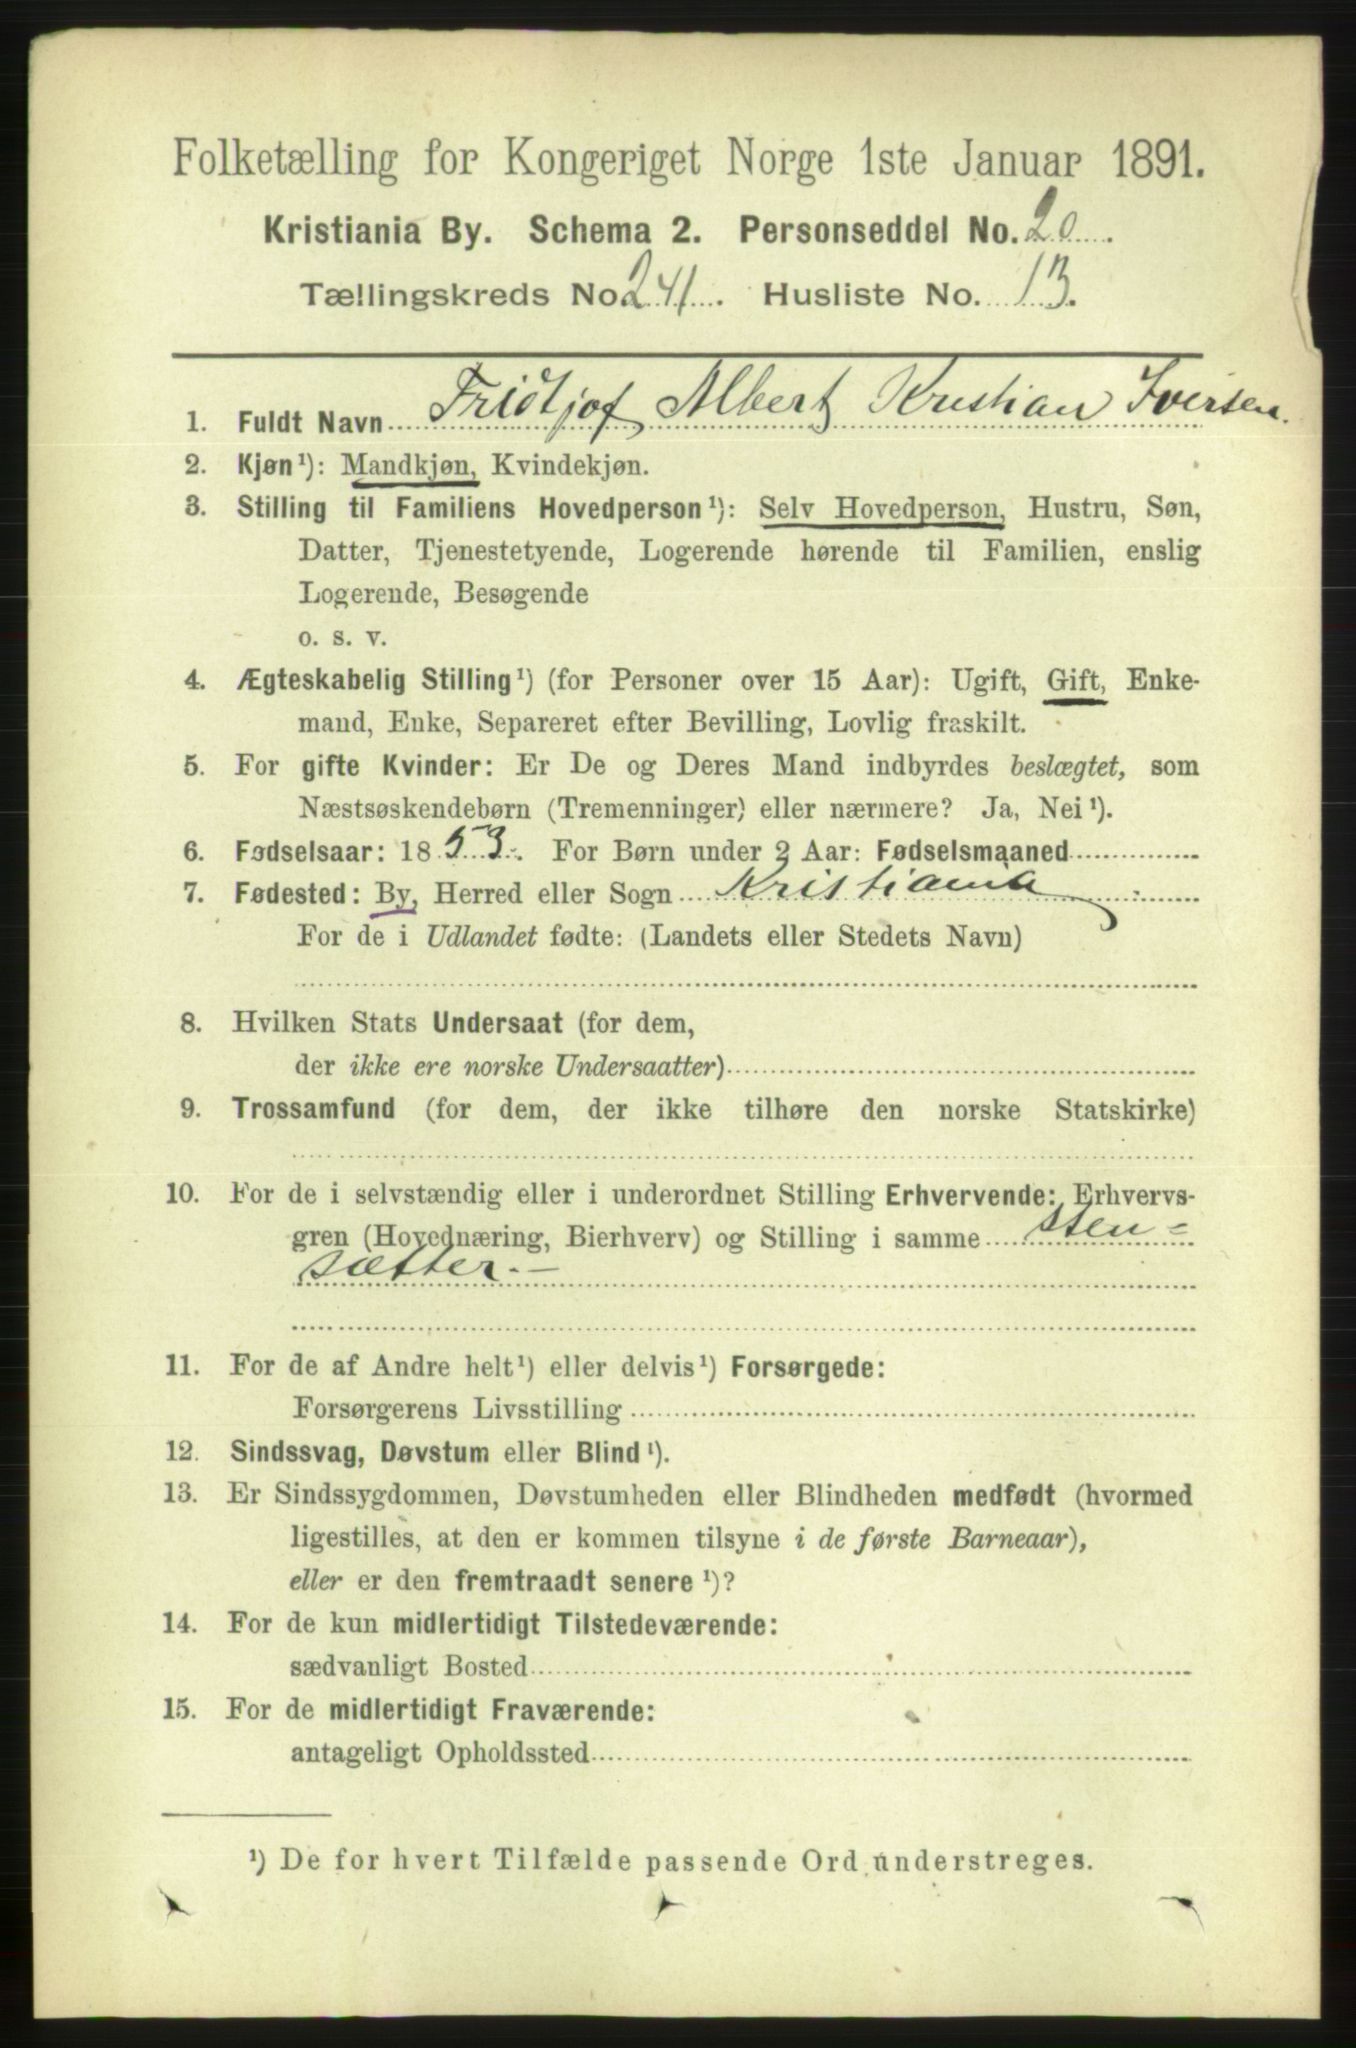 Folketælling for Kongeriget Norge 1ste Januar 1891.
Kristiania By. Schema 2. Personseddel No. 20.
Tællingskreds No. 241. Husliste No. 13.
1. Fuldt Navn Fridtjof Albert Kristian Iversen.
2. Kjøn¹): Mandkjøn, Kvindekjøn.
3. Stilling til Familiens Hovedperson¹): Selv Hovedperson, Hustru, Søn,
Datter, Tjenestetyende, Logerende hørende til Familien, enslig
Logerende, Besøgende
o. s. v.
4. Ægteskabelig Stilling¹) (for Personer over 15 Aar): Ugift, Gift, Enke-
mand, Enke, Separeret efter Bevilling, Lovlig fraskilt.
5. For gifte Kvinder: Er De og Deres Mand indbyrdes beslægtet, som
Næstsøskendebørn (Tremenninger) eller nærmere? Ja, Nei¹).
6. Fødselsaar: 1853. For Børn under 2 Aar: Fødselsmaaned
7. Fødested: By, Herred eller Sogn Kristiania
For de i Udlandet fødte: (Landets eller Stedets Navn)
8. Hvilken Stats Undersaat (for dem,
der ikke ere norske Undersaatter)
9. Trossamfund (for dem, der ikke tilhøre den norske Statskirke)
10. For de i selvstændig eller i underordnet Stilling Erhvervende: Erhvervs-
gren (Hovednæring, Bierhverv) og Stilling i samme Sten=
sætter.—
11. For de af Andre helt¹) eller delvis¹) Forsørgede:
Forsørgerens Livsstilling
12. Sindssvag, Døvstum eller Blind¹).
13. Er Sindssygdommen, Døvstumheden eller Blindheden medfødt (hvormed
ligestilles, at den er kommen tilsyne i de første Barneaar),
eller er den fremtraadt senere¹)?
14. For de kun midlertidigt Tilstedeværende:
sædvanligt Bosted
15. For de midlertidigt Fraværende:
antageligt Opholdssted
¹) De for hvert Tilfælde passende Ord understreges.